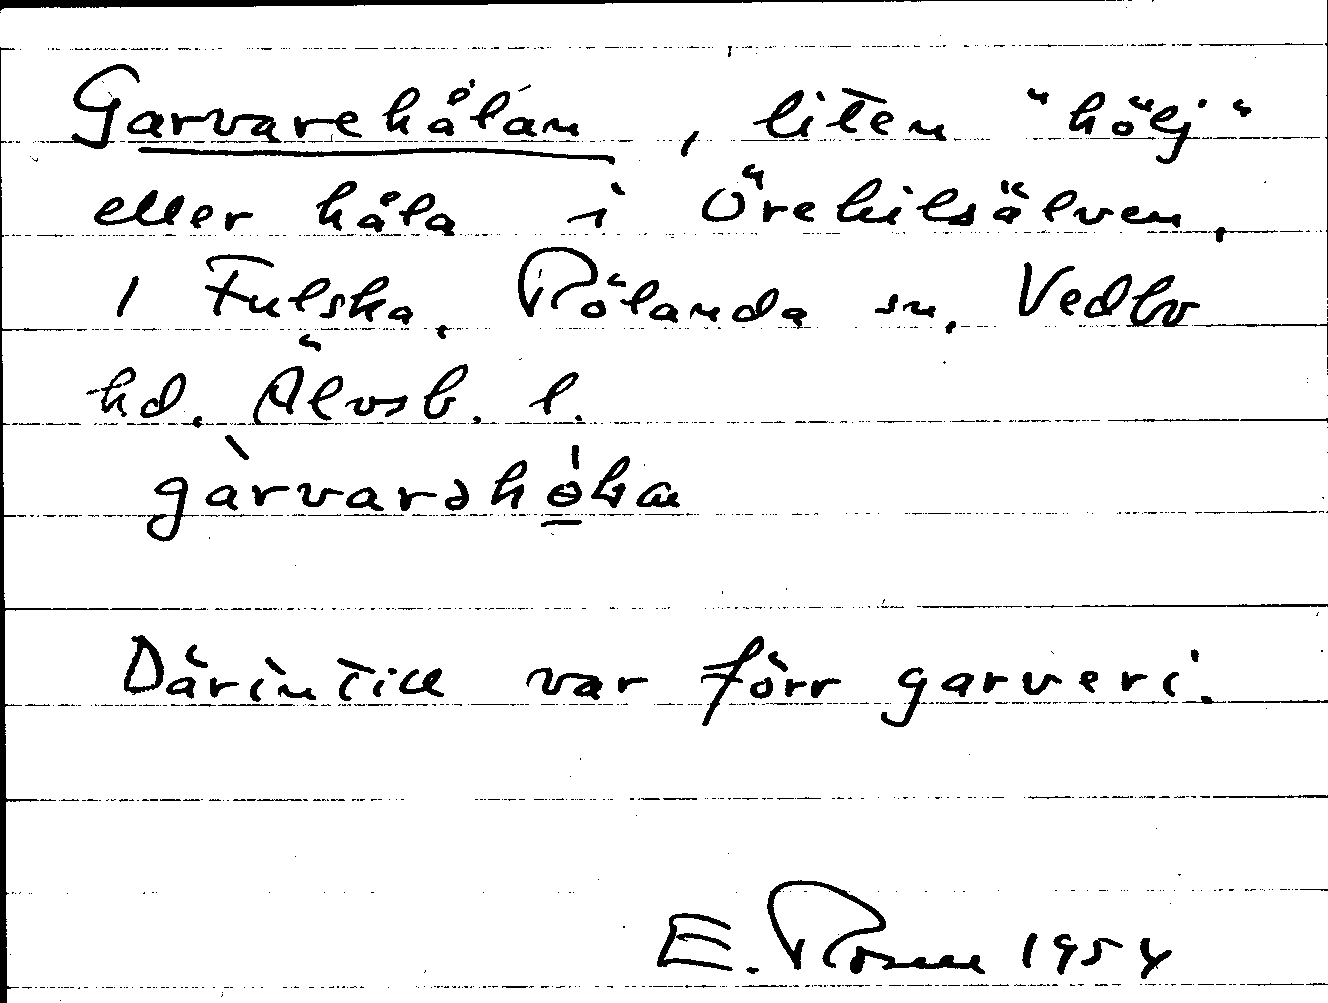 Garvarehålan, liten "hölj"
eller håla i Örekilsälven,
i Fulska, Rölanda sn, Vedbo
hd. Älvsb. l.
Därintill var förr garveri.
E. Rosell 1954